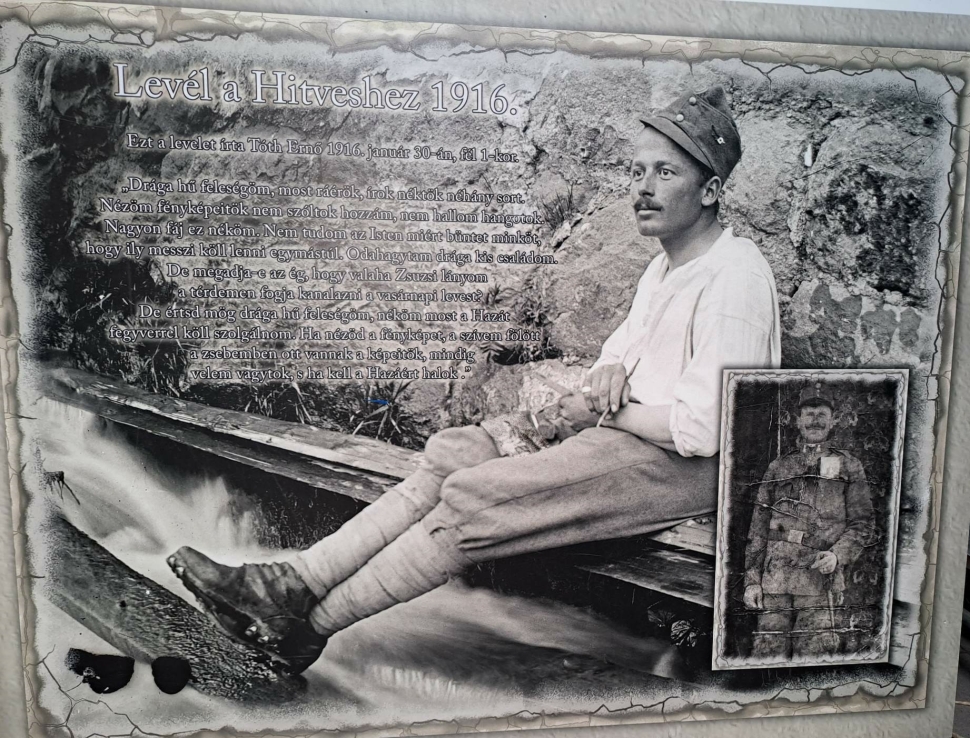 Levél a Hitveshez 1916.
Ezt a levelet írta Tóth Ernő 1916. január 30-án, fél 1-kor.
„Drága hű feleségöm, most ráérök, írok néktök néhány sort.
Nézöm fényképeitök nem szóltok hozzám, nem hallom hangotok.
Nagyon fáj ez néköm. Nem tudom az Isten miért büntet minköt,
hogy ily messzi köll lenni egymástul. Odahagytam drága kis családom.
De megadja-e az ég, hogy valaha Zsuzsi lányom
a térdemen fogja kanalazni a vasárnapi levest?
De értsd mög drága hű feleségöm, neköm most a Hazát
fegyverrel köll szolgálnom. Ha nézöd a fényképet, a szívem fölött
a zsebemben ott vannak a képeitök, mindig
velem vagytok, s ha kell a Hazáért halok."